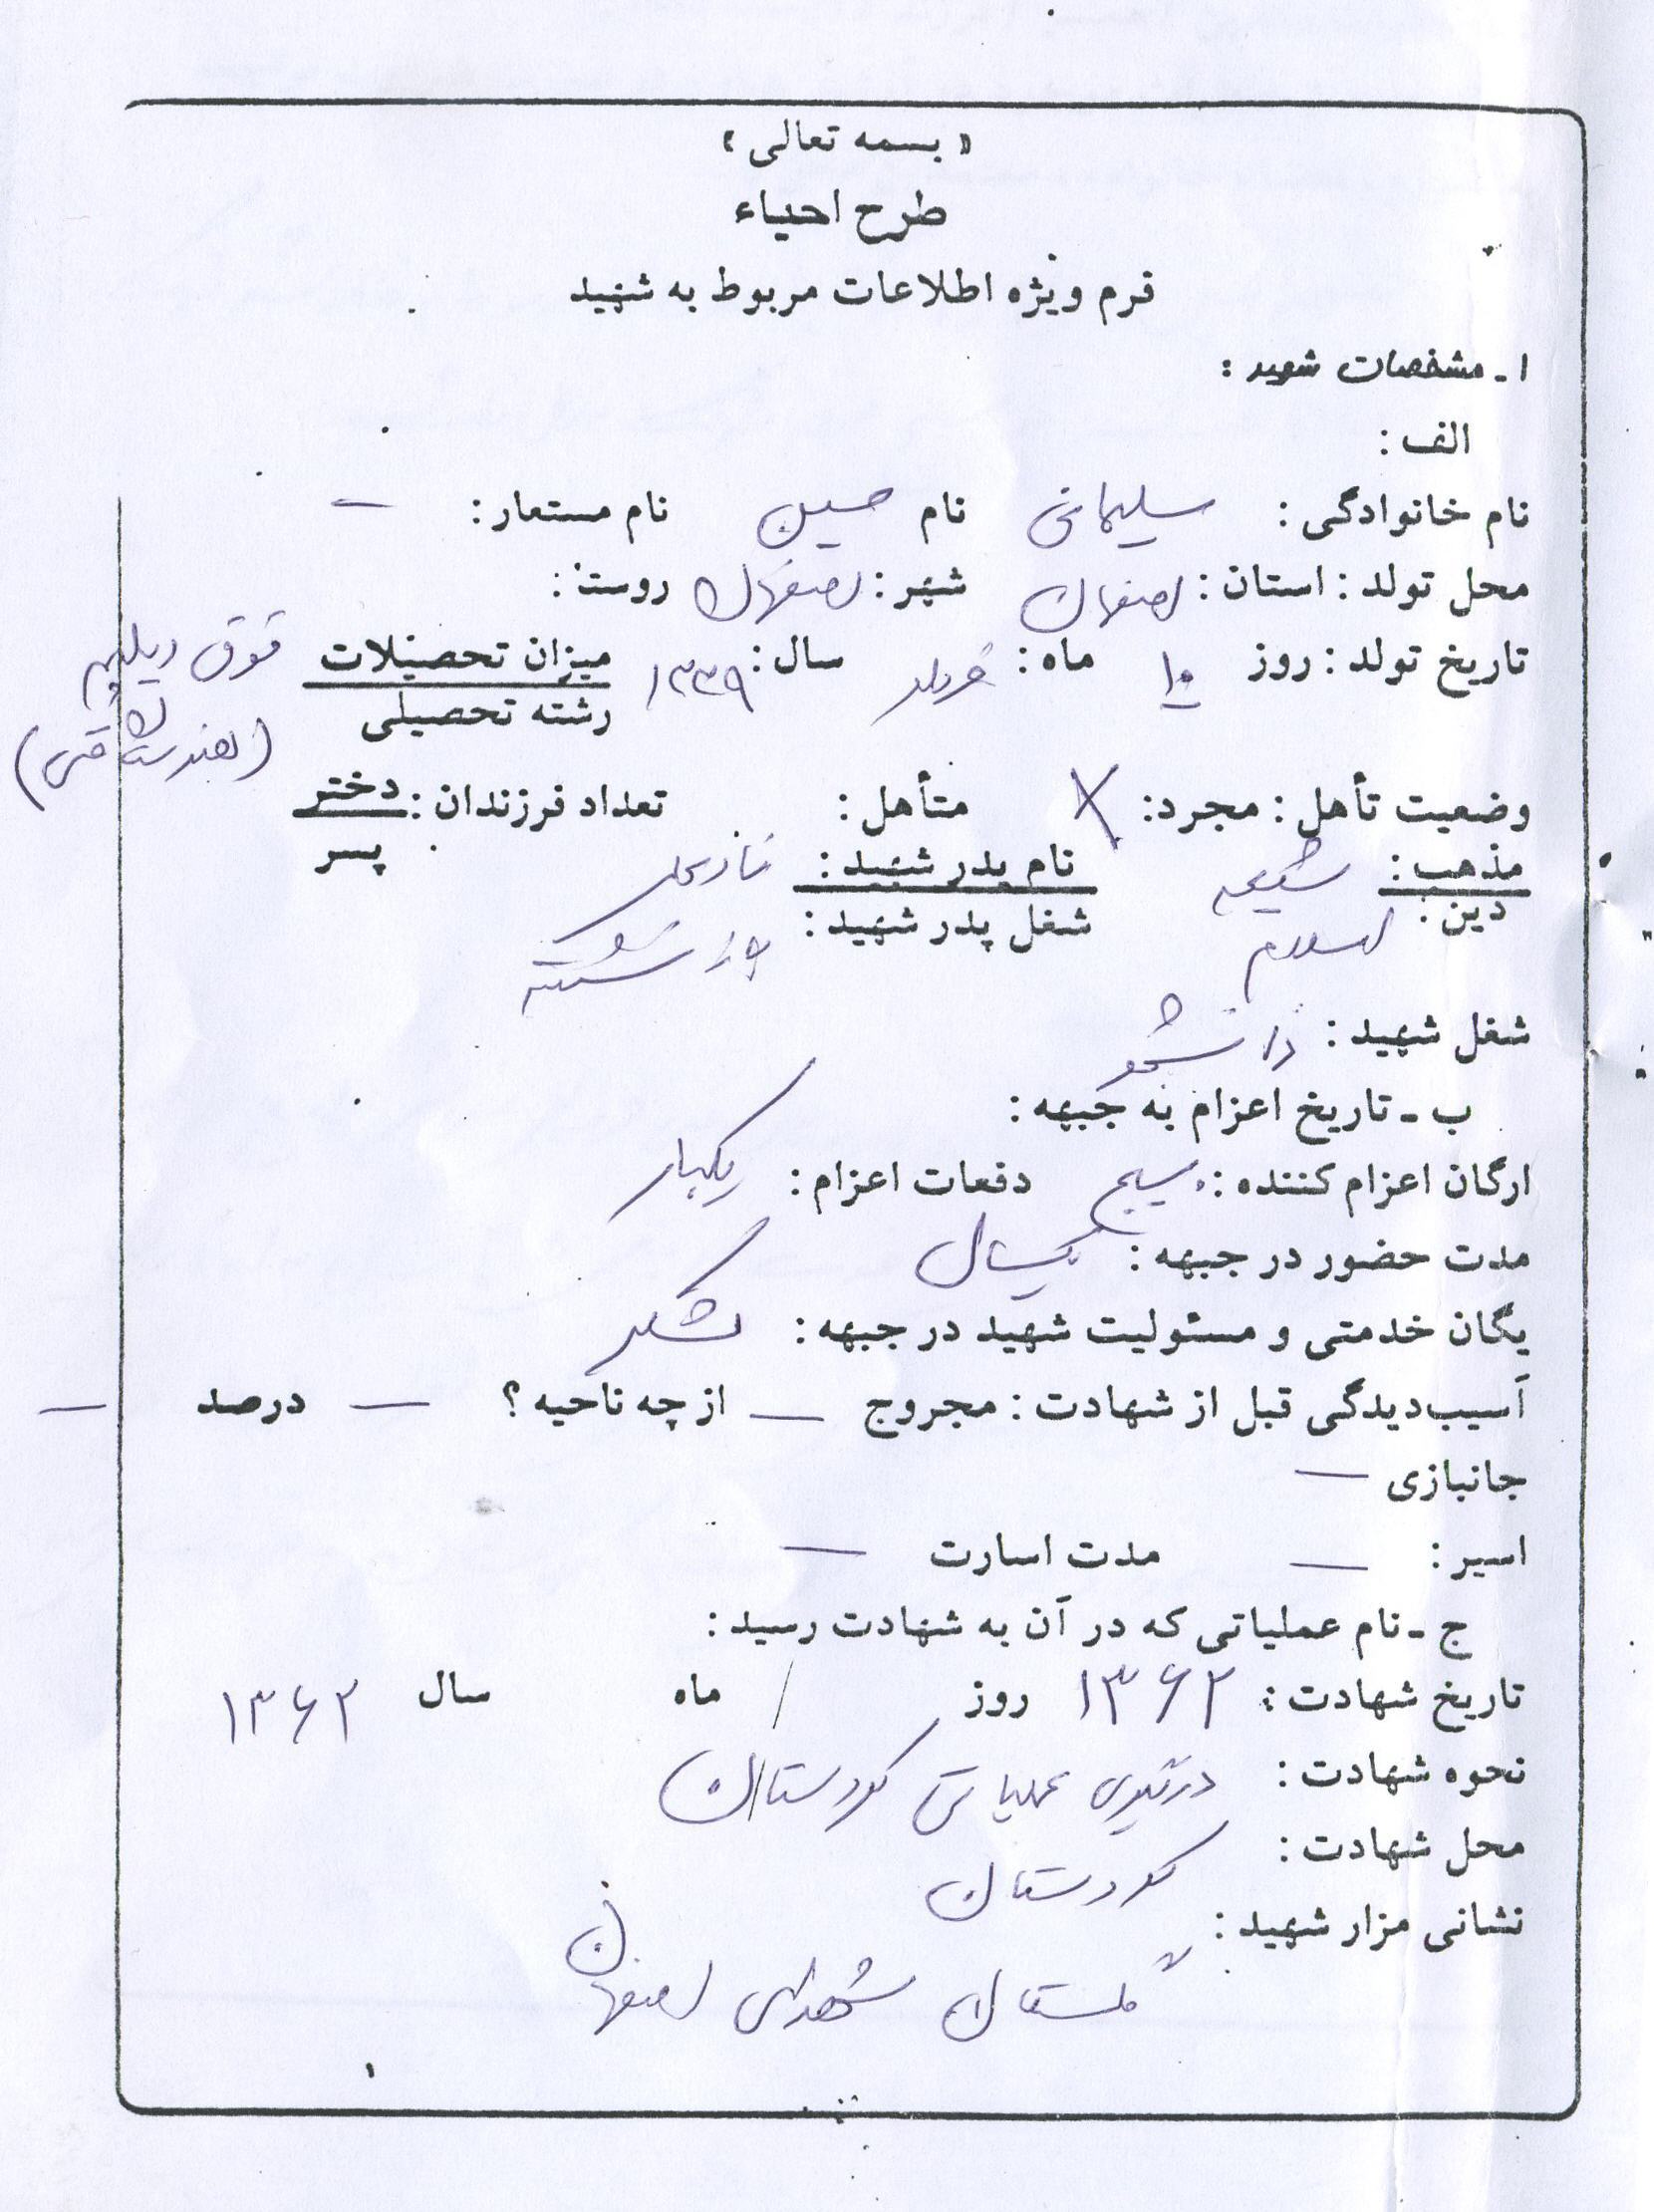 « بسمه تعالی »
طرح احیاء
فرم ویژه اطلاعات مربوط به شهید
۱ ـ مشخصات شهید :
الف :
نام خانوادگی : سلیمانی نام حسین نام مستعار : —
محل تولد : استان : اصفهان شهر : اصفهان روستا :
تاریخ تولد : روز ۱۰ ماه : خرداد سال : ۱۳۳۹ میزان تحصیلات فوق دیپلم
رشته تحصیلی (هنرستان فنی)
وضعیت تأهل : مجرد : X متأهل : تعداد فرزندان : دختر
پسر
مذهب : شیعه نام پدر شهید :
دین : اسلام شغل پدر شهید : بازنشسته
شغل شهید : دانشجو
ب ـ تاریخ اعزام به جبهه :
ارگان اعزام کننده : بسیج دفعات اعزام : یکبار
مدت حضور در جبهه : یکسال
یگان خدمتی و مسئولیت شهید در جبهه : لشکر
آسیب‌دیدگی قبل از شهادت : مجروح — از چه ناحیه ؟ — درصد —
جانبازی —
اسیر : — مدت اسارت —
ج ـ نام عملیاتی که در آن به شهادت رسید :
تاریخ شهادت : ۱۳۶۲ روز / ماه سال ۱۳۶۲
نحوه شهادت : درگیری عملیاتی کردستان
محل شهادت : کردستان
نشانی مزار شهید :
گلستان شهدای اصفهان
۱